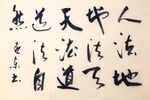 人法地
地法天
天法道
道法自
然